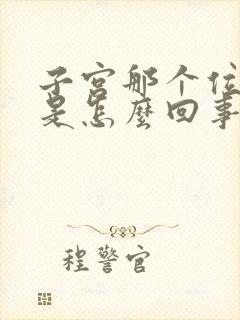 子宫那个位
是怎麼回事
程警官